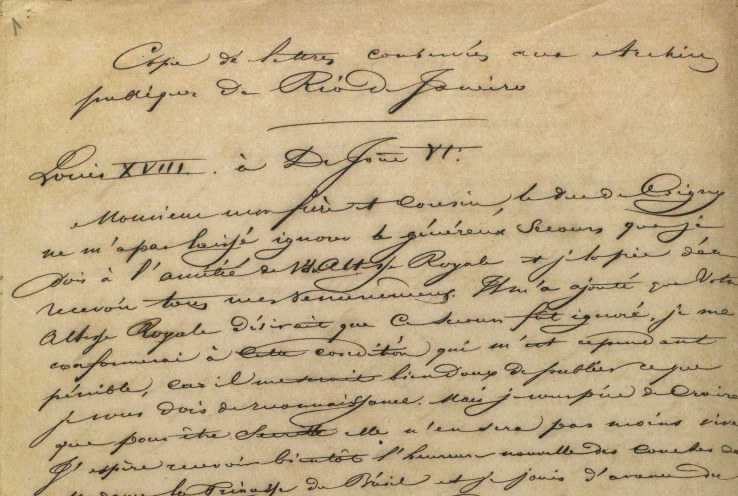 1
Copie de lettres conservées aux Archives
publiques de Rió de Janeiro
Louis XVIII. à D. João VI.
Monsieur mon frère et Cousin, le duc de Coigny
ne m'a pas laissé ignorer le généreux Secours que je
dois à l'amitié de V. Altesse Royal et j'
recevoir tous mes remerciemens. Il m'a ajouté que Votre
Altesse Royale désirait que ce secours fût ignoré, je me
conformerai à cette condition qui m'est cependant
pénible, car il me serait bien doux de publier ce que
je vous dois de reconnaissance. Mais je vous prie de Croire
que pour être Secrette elle n'en sera pas moins vive
J'espère recevoir bientôt l'heureuse nouvelle des couches de
la Princesse du Brésil et je jouis d'avance du